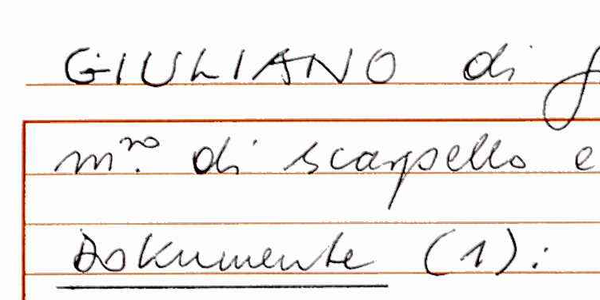 GIULIANO di
m.ro di scarpello e
Dokumente (1):